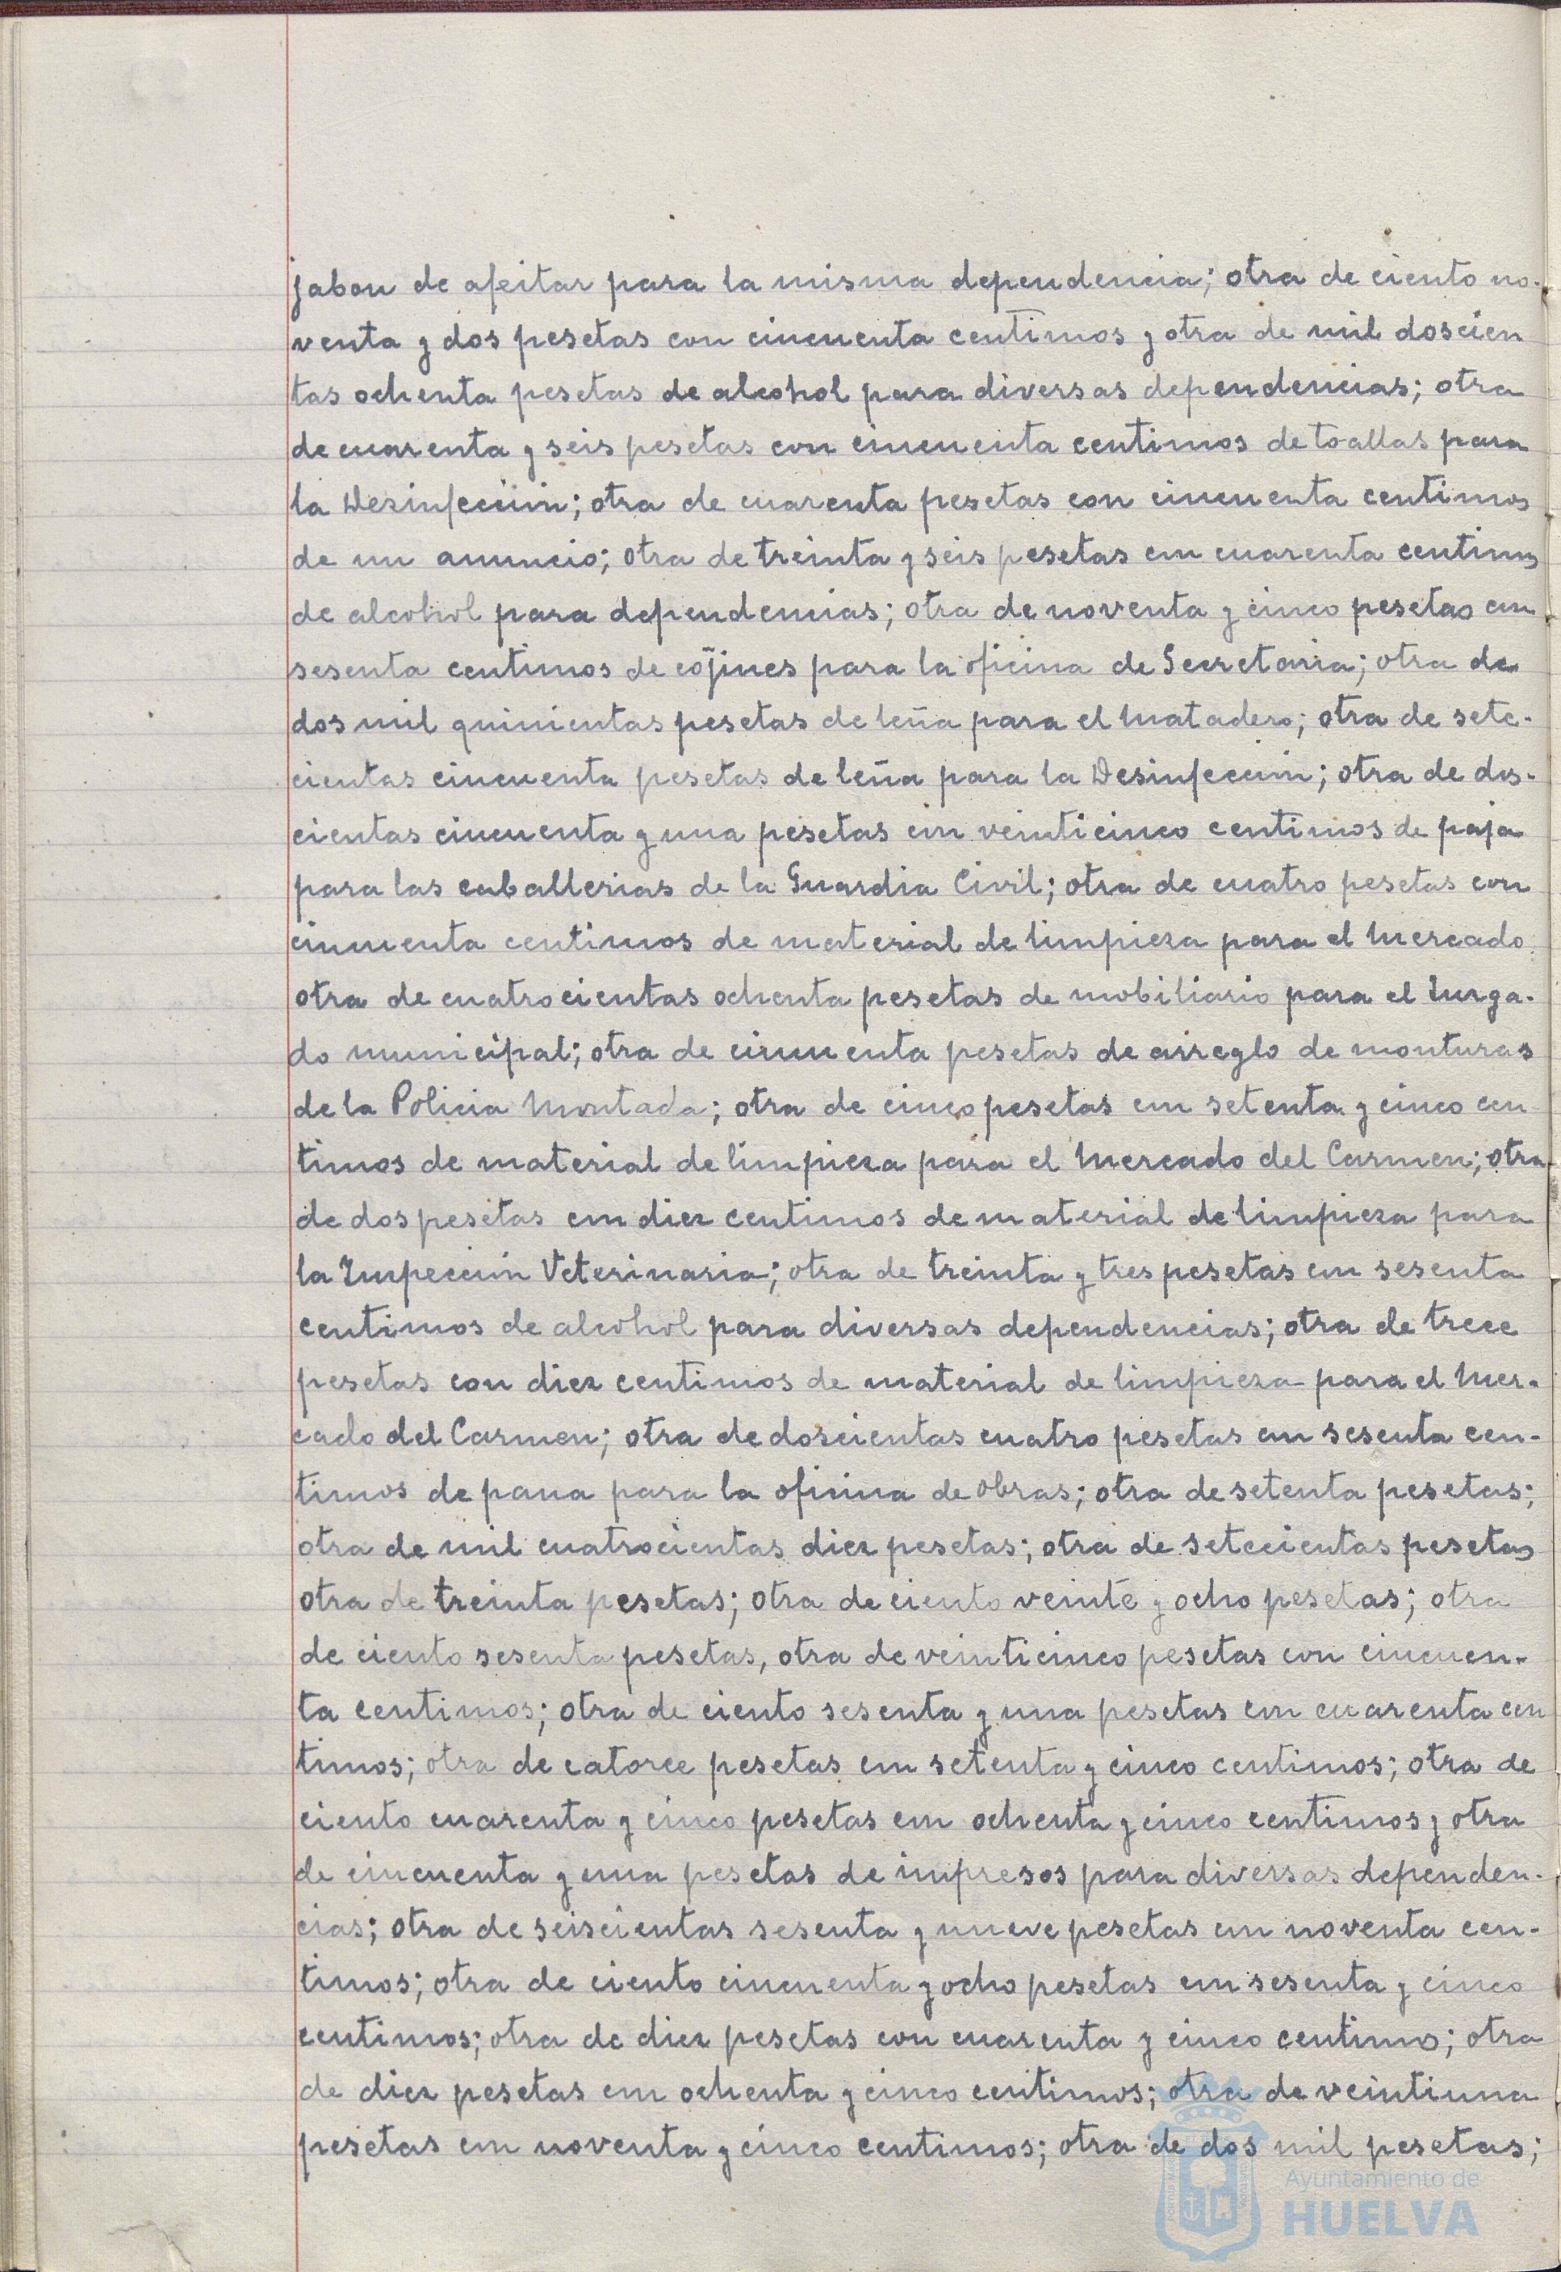 jabon de afeitar para la misma dependencia; otra de ciento no-
venta y dos pesetas con cincuenta centimos y otra de mil doscien
tas ochenta pesetas de alcohol para diversas dependencias; otra
de cuarenta y seis pesetas con cincuenta centimos de toallas para
la Desinfección; otra de cuarenta pesetas con cincuenta centimos
de un anuncio; otra de treinta y seis pesetas con cuarenta centimos
de alcohol para dependencias; otra de noventa y cinco pesetas con
sesenta centimos de cojines para la oficina de Secretaria; otra de
dos mil quinientas pesetas de leña para el Matadero; otra de sete-
cientas cincuenta pesetas de leña para la Desinfección; otra de dos-
cientas cincuenta y una pesetas con veinticinco centimos de paja
para las caballerias de la Guardia Civil; otra de cuatro pesetas con
cincuenta centimos de material de limpieza para el Mercado
otra de cuatrocientas ochenta pesetas de mobiliario para el Juzga-
do municipal; otra de cincuenta pesetas de arreglo de monturas
de la Policia Montada; otra de cinco pesetas con setenta y cinco cen
timos de material de limpieza para el Mercado del Carmen; otra
de dos pesetas con diez centimos de material de limpieza para
la Inspección Veterinaria; otra de treinta y tres pesetas con sesenta
centimos de alcohol para diversas dependencias; otra de trece
pesetas con diez centimos de material de limpieza para el Mer-
cado del Carmen; otra de doscientas cuatro pesetas con sesenta cen-
timos de pana para la oficina de Obras; otra de setenta pesetas;
otra de mil cuatrocientas diez pesetas; otra de setecientas pesetas
otra de treinta pesetas; otra de ciento veinte y ocho pesetas; otra
de ciento sesenta pesetas, otra de veinticinco pesetas con cincuen-
ta centimos; otra de ciento sesenta y una pesetas con cuarenta cen
timos; otra de catorce pesetas con setenta y cinco centimos; otra de
ciento cuarenta y cinco pesetas con ochenta y cinco centimos y otra
de cincuenta y una pesetas de impresos para diversas dependen-
cias; otra de seiscientas sesenta y nueve pesetas con noventa cen-
timos; otra de ciento cincuenta y ocho pesetas con sesenta y cinco
centimos; otra de diez pesetas con cuarenta y cinco centimos; otra
de diez pesetas con ochenta y cinco centimos; otra de veintiuna
pesetas con noventa y cinco centimos; otra de dos mil pesetas;
Ayuntamiento de
HUELVA